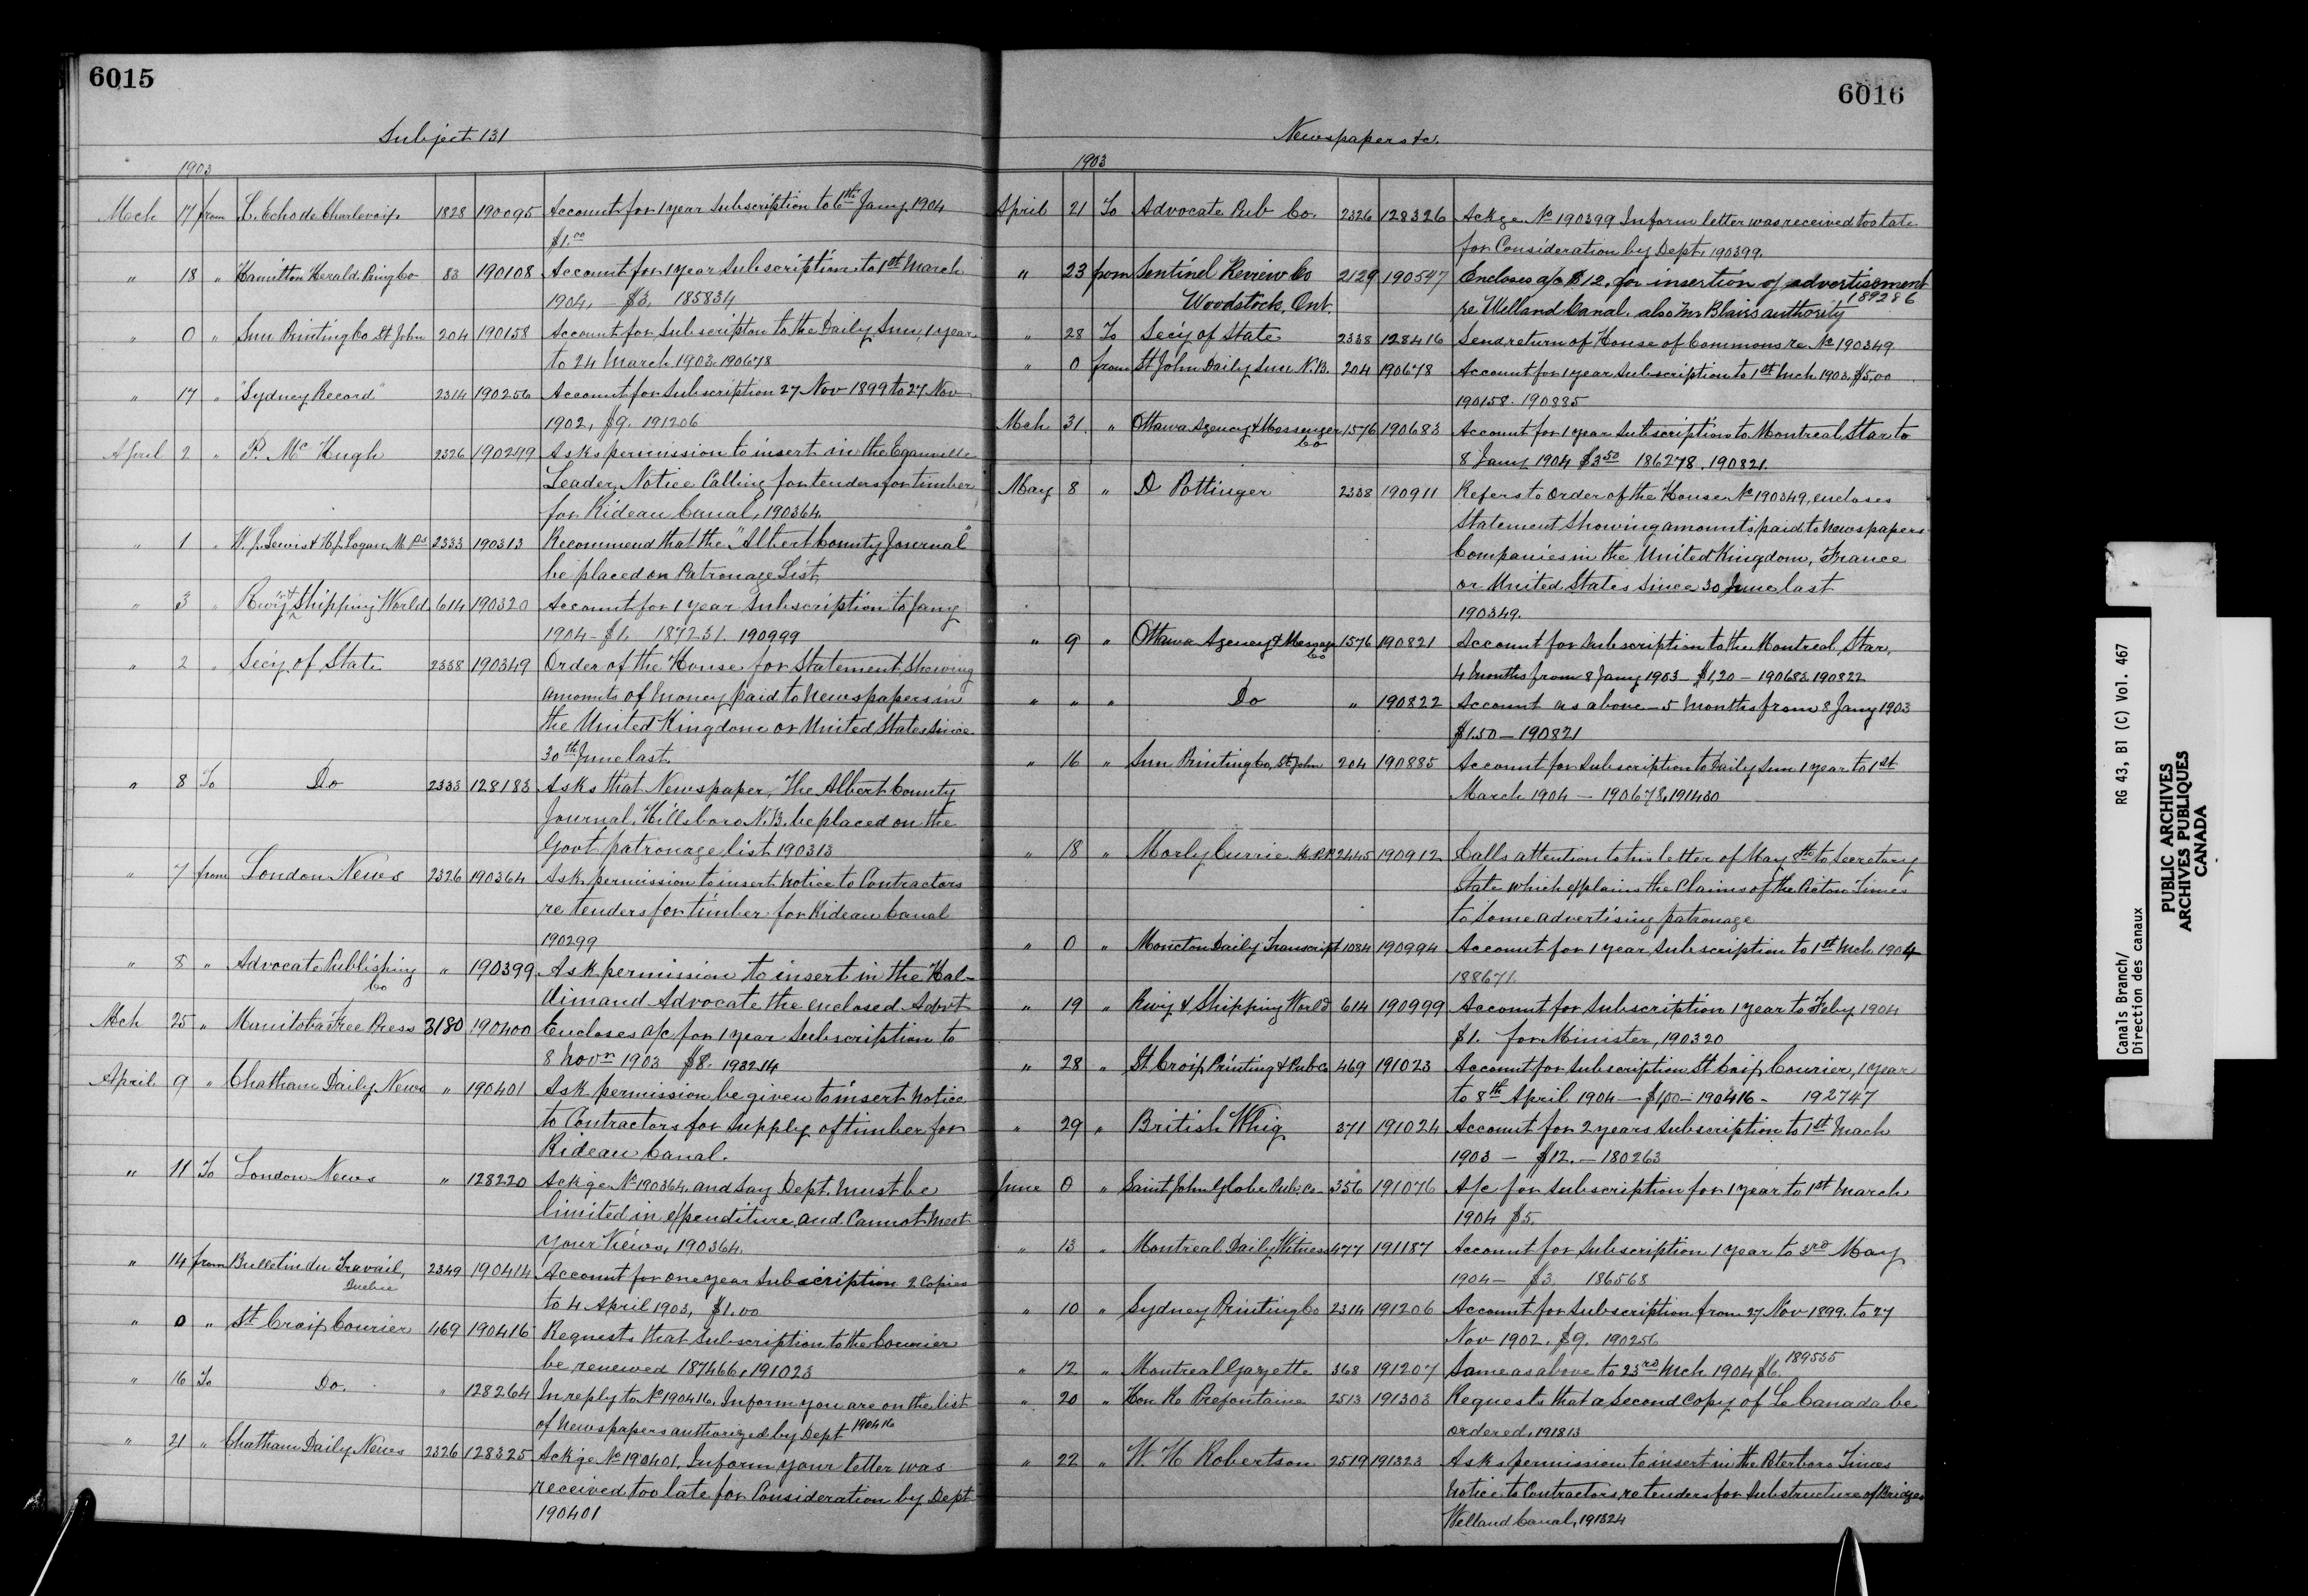 6015
Subject 131
1903
Mch 17 from L. Echo de Charlevoix 1828 190095 Account for 1 year Subscription to 6th Jany 1904
$1.00
" 18 " Hamilton Herald Ping Co 83 190108 Account for 1 year Subscription to 1st March
1904. — $3. 185834
" 0 " Sun Printing Co St John 204 190158 Account for Subscripton to the Daily Sun, 1 year
to 24 March 1903. 190678
" 17 " "Sydney Record" 2314 190256 Account for Subscription 27 Nov 1899 to 27 Nov
1902, $9. 191206
April 2 " P. Mc Hugh 2326 190299 Asks permission to insert in the Eganville
Leader, Notice Calling for tenders for timber
for Rideau Canal, 190364.
" 1 " W. J. Lewis & H. J. Logan M.Ps 2333 190313 Recommend that the "Albert County Journal"
be placed on Patronage List
" 3 " Rwy & Shipping World 614 190320 Account for 1 year Subscription to Jany
1904 - $1. 187231. 190999
" 2 " Secy. of State 2338 190349 Order of the House for Statement Showing
amounts of money paid to Newspapers in
the United Kingdom or United States since
30th June last.
" 8 To Do 2333 128183 Asks that Newspaper, The Albert County
Journal, Hillsboro N.B. be placed on the
Govt patronage list 190313
" 7 from London News 2326 190364 Ask permission to insert Notice to Contractors
re tenders for timber for Rideau Canal
190299
" 8 " Advocate Publishing Co " 190399 Ask permission to insert in the Hal-
dimand Advocate the enclosed Advt
Mch 25 " Manitoba Free Press 3180 190400 Encloses a/c for 1 year Subscription to
8 Novr 1903 $8. 193214
April 9 " Chatham Daily News " 190401 Ask permission be given to insert Notice
to Contractors for Supply of timber for
Rideau Canal.
" 11 To London News " 128220 Ackge No 190364. and Say Dept. Must be
limited in expenditure and Cannot meet
your Views, 190364.
" 14 from Bulletin du Travail, Quebec 2349 190414 Account for one year Subscription 2 Copies
to 4 April 1903, $1.00
" 0 " St Croix Courier 469 190416 Requests that Subscription to the Courier
be renewed 187466, 191023
" 16 To Do. " 128264 In reply to No 190416. Inform you are on the list
of Newspapers authorized by Dept 190416
" 21 " Chatham Daily News 2326 128325 Ackge No 190401. Inform your letter was
received too late for Consideration by Dept
190401
6016
Newspapers &c.
1903
April 21 To Advocate Pub Co. 2326 128326 Ackge No 190399 Inform letter was received too late
for Consideration by Dept. 190399.
" 23 from Sentinel Review Co 2129 190547 Encloses a/c $12. for insertion of advertisement
Woodstock, Ont. re Welland Canal. also Mr Blairs authority 189286
" 28 To Secy of State 2338 128416 Send return of House of Commons re No 190349
" 0 from St John Daily Sun N.B. 204 190678 Account for 1 year Subscription to 1st Mch 1903. $5.00
190158. 190885
Mch 31. " Ottawa Agency & Messenger Co 1576 190683 Account for 1 year Subscription to Montreal Star to
8 Jany 1904 $3.50 186278. 190821.
May 8 " D Pottinger 2338 190911 Refers to Order of the House No 190349, encloses
Statement Showing amounts paid to Newspapers
Companies in the United Kingdom, France
or United States since 30 June last
190349.
" 9 " Ottawa Agency & Messgr Co 1576 190821 Account for Subscription to the Montreal Star,
4 Months from 8 Jany 1903 — $1,20 — 190683. 190822
" " " Do " 190822 Account as above — 5 Months from 8 Jany 1903
$1.50 — 190821
" 16 " Sun Printing Co, St John 204 190885 Account for Subscription to Daily Sun 1 year to 1st
March 1904 — 190678, 191430
" 18 " Morly Currie M.P.P. 2445 190912 Calls attention to his letter of May 8th to Secretary
State which explains the Claims of the Acton Times
to Some advertising patronage
" 0 " Moncton Daily Transcript 1084 190994 Account for 1 year Subscription to 1st Mch 1904
188671.
" 19 " Rwy & Shipping World 614 190999 Account for Subscription 1 year to Feby 1904
$1. for Minister, 190320
" 28 " St Croix Printing & Pub Co 469 191023 Account for Subscription St Croix Courier, 1 year
to 8th April 1904 — $1,00 — 190416 - 192747
" 29 " British Whig 371 191024 Account for 2 years Subscription to 1st Mach
1903 — $12. — 180263
June 0 " Saint John Globe Pub. Co 356 191076 A/c for Subscription for 1 year to 1st March
1904 $5.
" 13 " Montreal Daily Witness 477 191187 Account for Subscription 1 year to 3rd May
1904 — $3. 186568
" 10 " Sydney Printing Co 2314 191206 Account for Subscription from 27 Nov 1899. to 27
Nov 1902. $9. 190256
" 12 " Montreal Gazette 368 191207 Same as above to 23rd Mch 1904 $6. 189535
" 20 " Hon R. Prefontaine 2513 191303 Requests that a Second Copy of Le Canada be
ordered, 191813
" 22 " W H Robertson 2519 191323 Asks permission to insert in the Peterboro Times
Notice to Contractors, re tenders for Substructure of Bridges
Welland Canal, 191324
Canals Branch/ RG 43, B1 (C) Vol. 467
Direction des canaux
PUBLIC ARCHIVES
ARCHIVES PUBLIQUES
CANADA